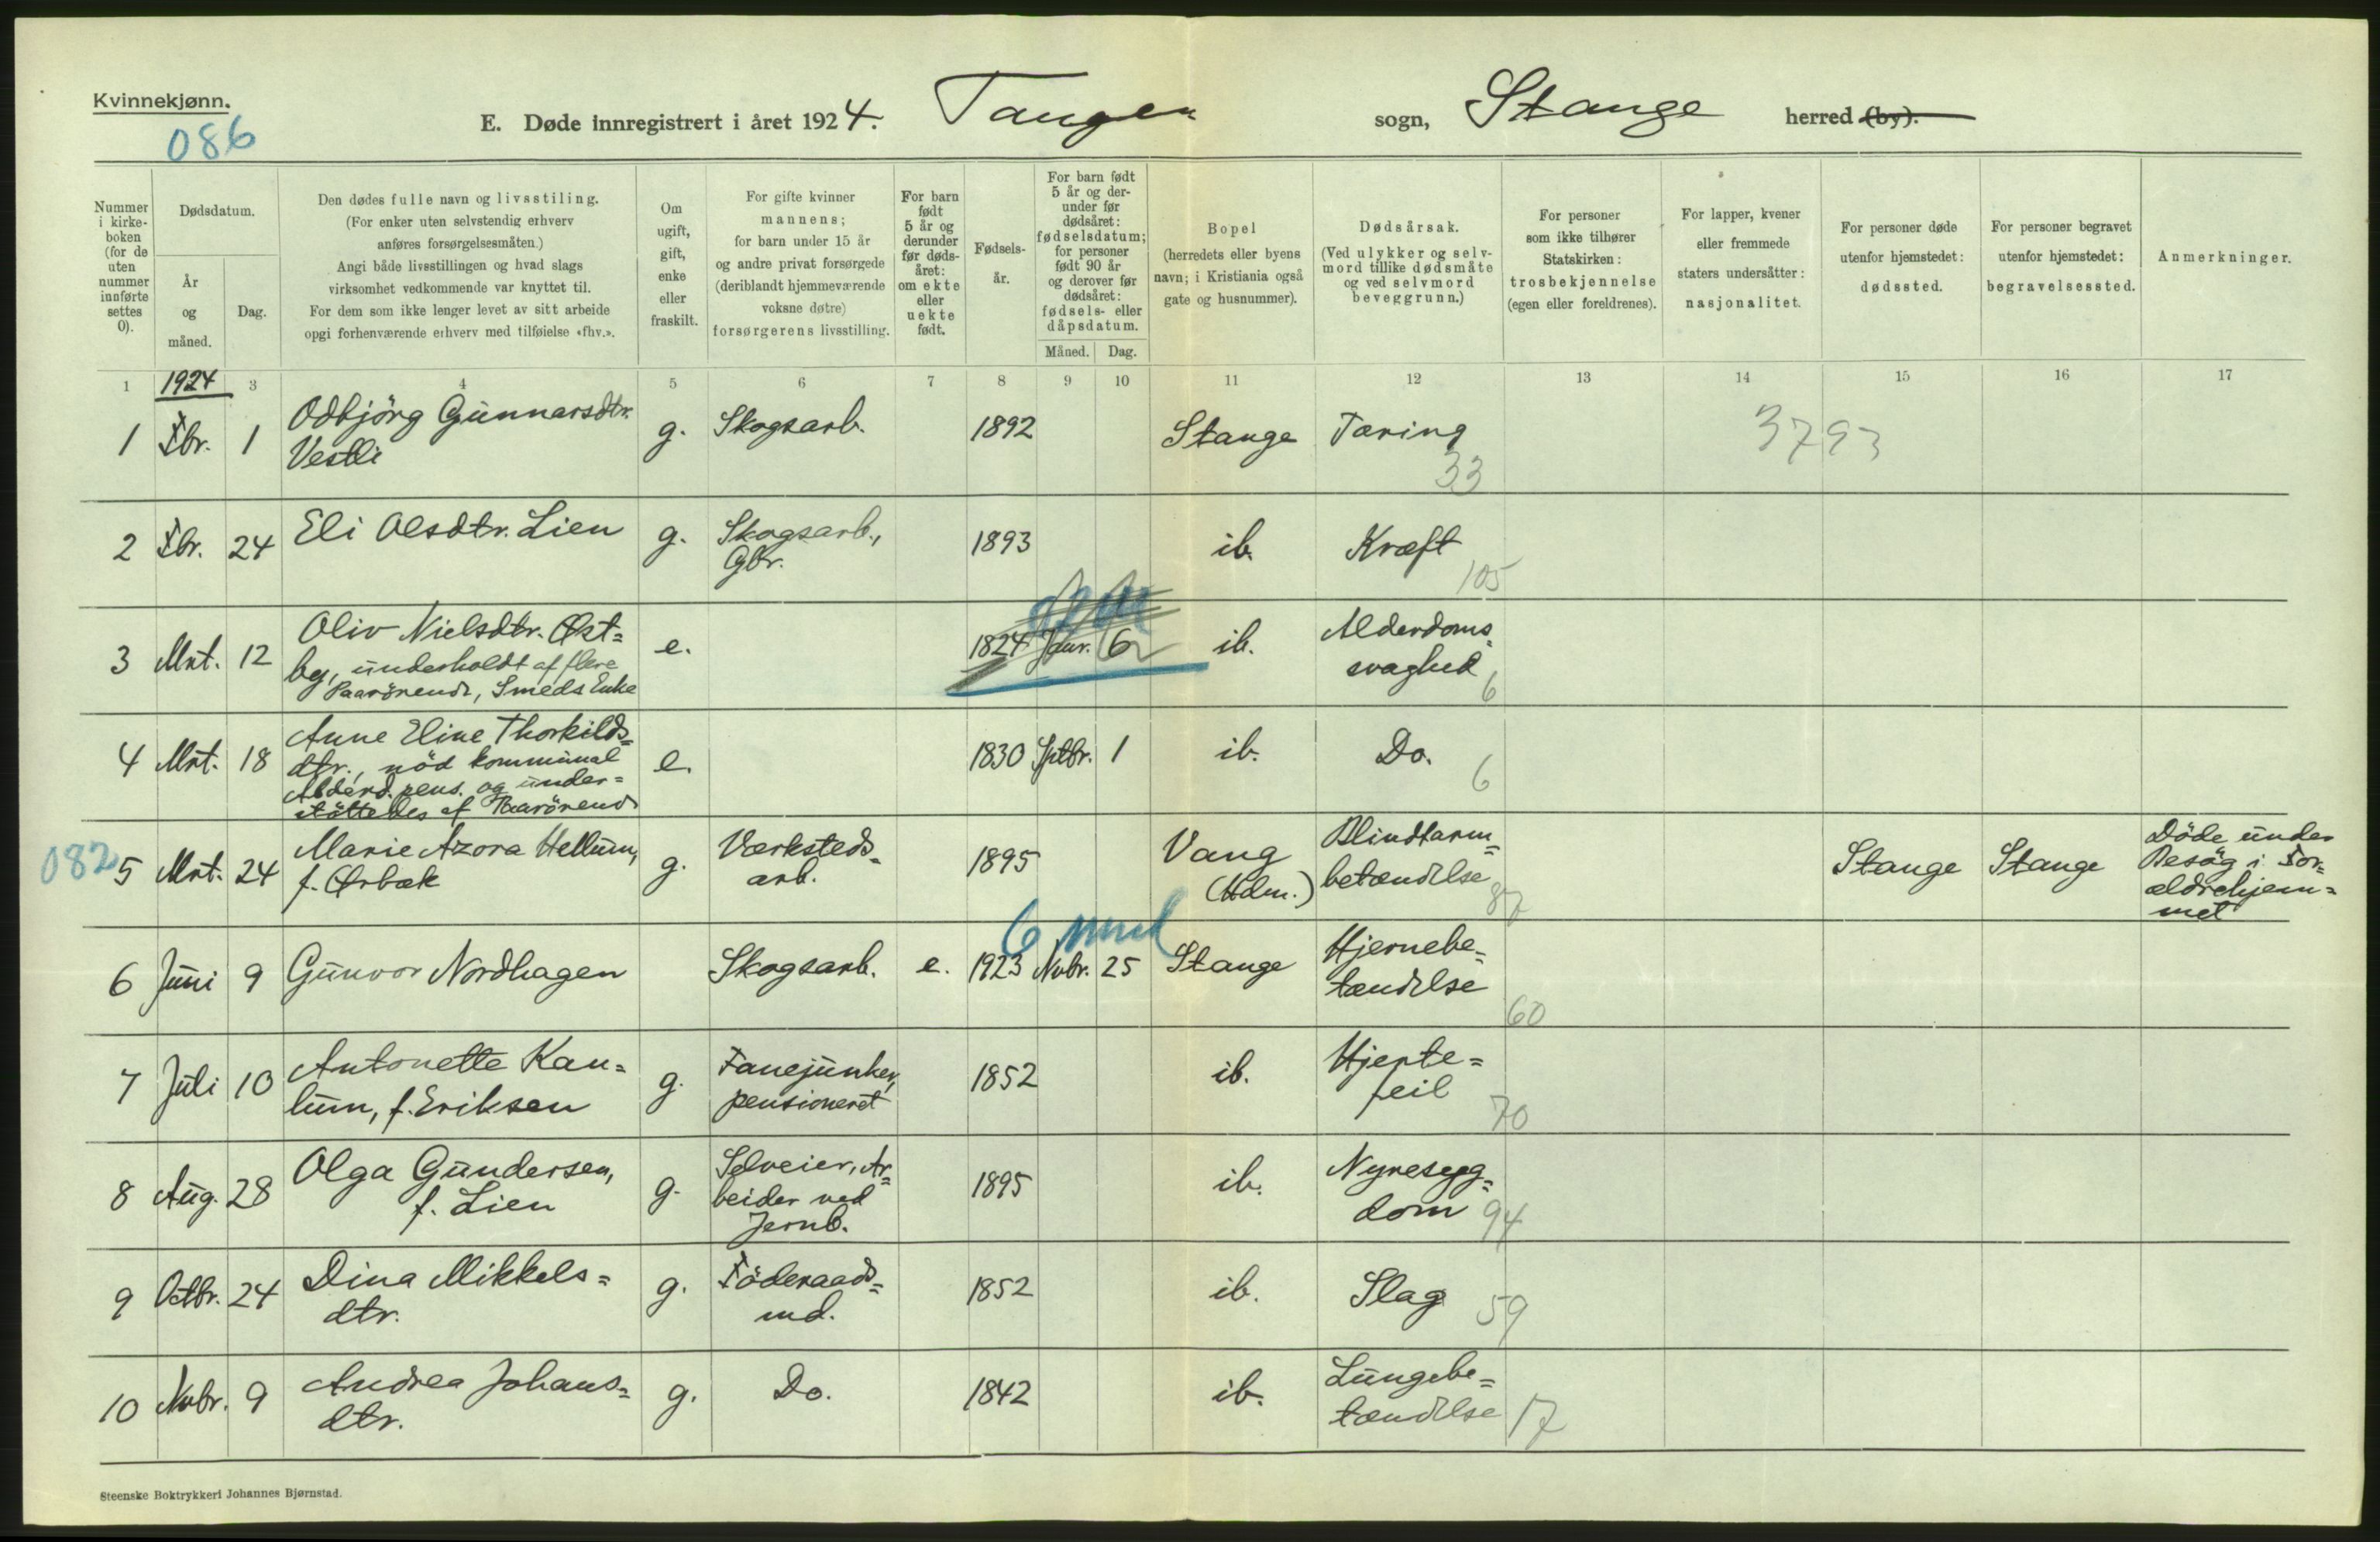 Kvinnekjønn.
086
E. Døde innregistrert i året 1924. Tangen sogn, Stange herred (by).
Nummer i kirke-boken (for de uten nummer innførte settes 0).
Dødsdatum.
År og måned.
Dag.
Den dødes fulle navn og livsstiling.
(For enker uten selvstendig erhverv
anføres forsørgelsesmåten.)
Angi både livsstillingen og hvad slags
virksomhet vedkommende var knyttet til.
For dem som ikke lenger levet av sitt arbeide
opgi forhenværende erhverv med tilføielse «fhv.».
Om
ugift,
gift,
enke
eller
fraskilt.
For gifte kvinner
mannens;
for barn under 15 år
og andre privat forsørgede
(deriblandt hjemmeværende
voksne døtre)
forsørgerens livsstilling.
For barn
født
5 år og
derunder
før døds-
året:
om ekte
eller
uekte
født.
Fødsels-
år.
For barn født
5 år og der-
under før
dødsåret:
fødselsdatum;
for personer
født 90 år
og derover før
dødsåret:
fødsels- eller
dåpsdatum.
Måned. Dag.
Bopel
(herredets eller byens
navn; i Kristiania også
gate og husnummer).
Dødsårsak.
(Ved ulykker og selv-
mord tillike dødsmåte
og ved selvmord
beveggrunn.)
For personer
som ikke tilhører
Statskirken:
trosbekjennelse
(egen eller foreldrenes).
For lapper, kvener
eller fremmede
staters undersåtter:
nasjonalitet.
For personer døde
utenfor hjemstedet:
dødssted.
For personer begravet
utenfor hjemstedet:
begravelsessted.
Anmerkninger.
1 1924 3 4 5 6 7 8 9 10 11 12 13 14 15 16 17
1 Fbr. 1 Odbjörg Gunnarsdtr. g. Skogsarb. 1892 Stange Tæring 3793
Vestli 33
2 Fbr. 24 Eli Olsdtr. Lien g. Skogsarb., 1893 ib. Kræft
Gbr. 105
3 Mrt. 12 Oliv Nielsdtr. Øst= e. 1824 Janr. 6 ib. Alderdoms=
by, underholdt af flere svaghed 6
Paarörende, Smeds Enke
4 Mrt. 18 Anne Eline Thorkilds= e. 1830 Sptbr. 1 ib. Do. 6
dtr., nöd kommunal
Alderd. pens. og under=
stöttedes af Paarörende
082 5 Mrt. 24 Marie Azora Hellum, g. Værksteds= 1895 Vang Blindtarm= Stange Stange Döde under
f. Ørbæk arb. (Hdm.) betændelse 87 Besög i For=
ældrehjem=
met
6 mnd
6 Juni 9 Gunvor Nordhagen Skogsarb. e. 1923 Nvbr. 25 Stange Hjernebe=
tændelse 60
7 Juli 10 Antonette Kau= g. Fanejunker, 1852 ib. Hjerte=
lum, f. Eriksen pensioneret feil 70
8 Aug. 28 Olga Gundersen, g. Selveier, Ar= 1895 ib. Nyresyg=
f. Lien beider ved dom 94
Jernb.
9 Octbr. 24 Dina Mikkels= g. Föderaads= 1852 ib. Slag 59
dtr. md.
10 Nvbr. 9 Andrea Johans= g. Do. 1842 ib. Lungebe=
dtr. tændelse 17
Steenske Boktrykkeri Johannes Bjørnstad.